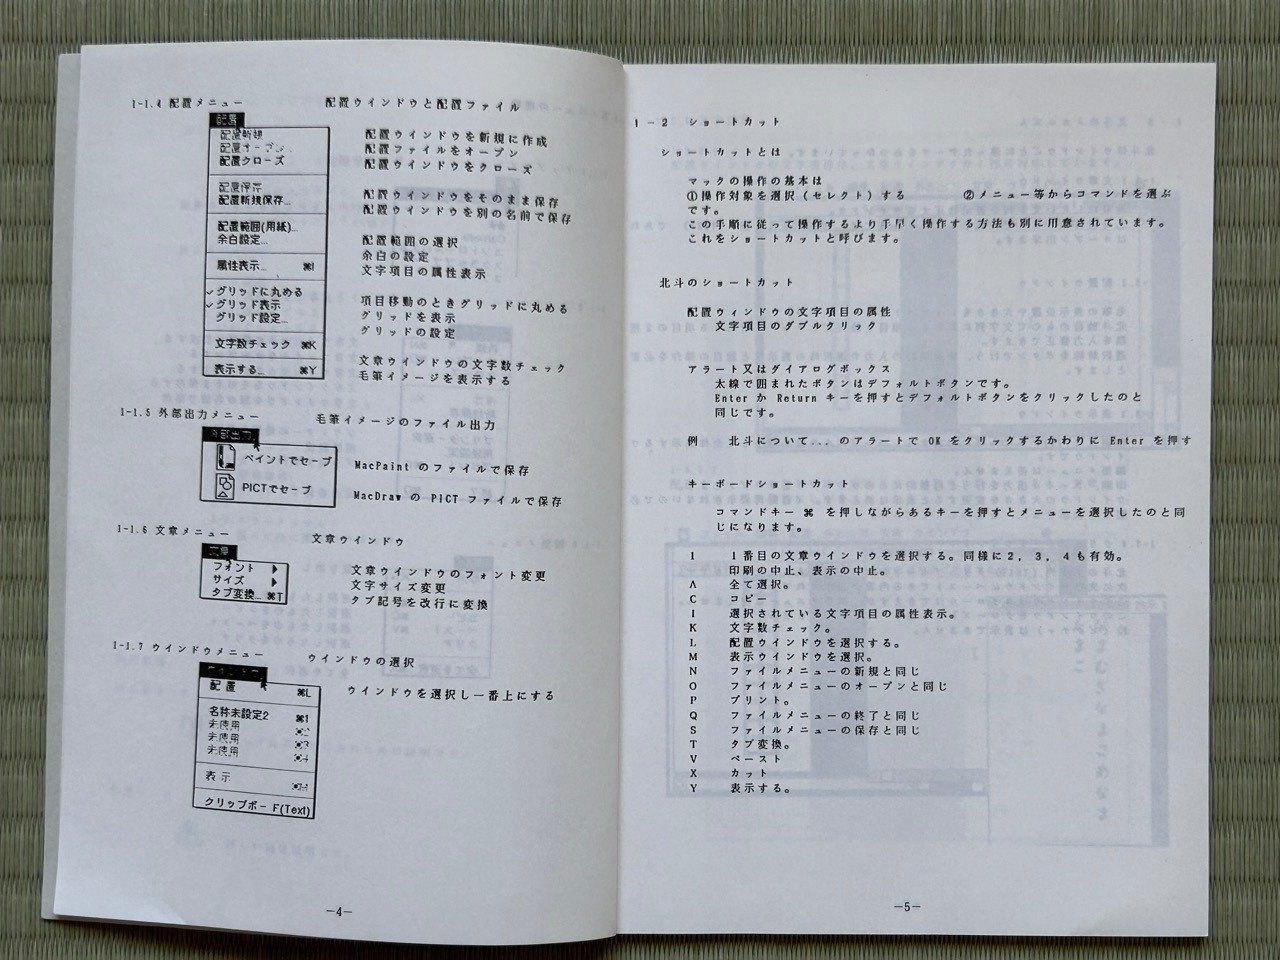 1-1.4 配置メニュー　　配置ウインドウと配置ファイル
配置
配置新規　　配置ウインドウを新規に作成
配置オープン...　　配置ファイルをオープン
配置クローズ　　配置ウインドウをクローズ
配置保存　　配置ウインドウをそのまま保存
配置新規保存...　　配置ウインドウを別の名前で保存
配置範囲(用紙)...　　配置範囲の選択
余白設定...　　余白の設定
属性表示... ⌘I　　文字項目の属性表示
✓グリッドに丸める　　項目移動のときグリッドに丸める
✓グリッド表示　　グリッドを表示
グリッド設定...　　グリッドの設定
文字数チェック ⌘K　　文章ウインドウの文字数チェック
表示する... ⌘Y　　毛筆イメージを表示する
1-1.5 外部出力メニュー　　毛筆イメージのファイル出力
外部出力
ペイントでセーブ　　MacPaint のファイルで保存
PICTでセーブ　　MacDraw の PICT ファイルで保存
1-1.6 文章メニュー　　文章ウインドウ
文章
フォント ▶　　文章ウインドウのフォント変更
サイズ ▶　　文字サイズ変更
タブ変換... ⌘T　　タブ記号を改行に変換
1-1.7 ウインドウメニュー　　ウインドウの選択
配置 ⌘L　　ウインドウを選択し一番上にする
名称未設定2 ⌘1
未使用
未使用
未使用
表示
クリップボードF(Text)
－4－
1－2　ショートカット
ショートカットとは
マックの操作の基本は
①操作対象を選択（セレクト）する　　②メニュー等からコマンドを選ぶ
です。
この手順に従って操作するより手早く操作する方法も別に用意されています。
これをショートカットと呼びます。
北斗のショートカット
配置ウィンドウの文字項目の属性
文字項目のダブルクリック
アラート又はダイアログボックス
太線で囲まれたボタンはデフォルトボタンです。
Enter か Return キーを押すとデフォルトボタンをクリックしたのと
同じです。
例　北斗について... のアラートで OK をクリックするかわりに Enter を押す
キーボードショートカット
コマンドキー ⌘ を押しながらあるキーを押すとメニューを選択したのと同
じになります。
1　1番目の文章ウインドウを選択する。同様に2, 3, 4も有効。
.　印刷の中止、表示の中止。
A　全て選択。
C　コピー
I　選択されている文字項目の属性表示。
K　文字数チェック。
L　配置ウインドウを選択する。
M　表示ウインドウを選択。
N　ファイルメニューの新規と同じ
O　ファイルメニューのオープンと同じ
P　プリント。
Q　ファイルメニューの終了と同じ
S　ファイルメニューの保存と同じ
T　タブ変換。
V　ペースト
X　カット
Y　表示する。
－5－